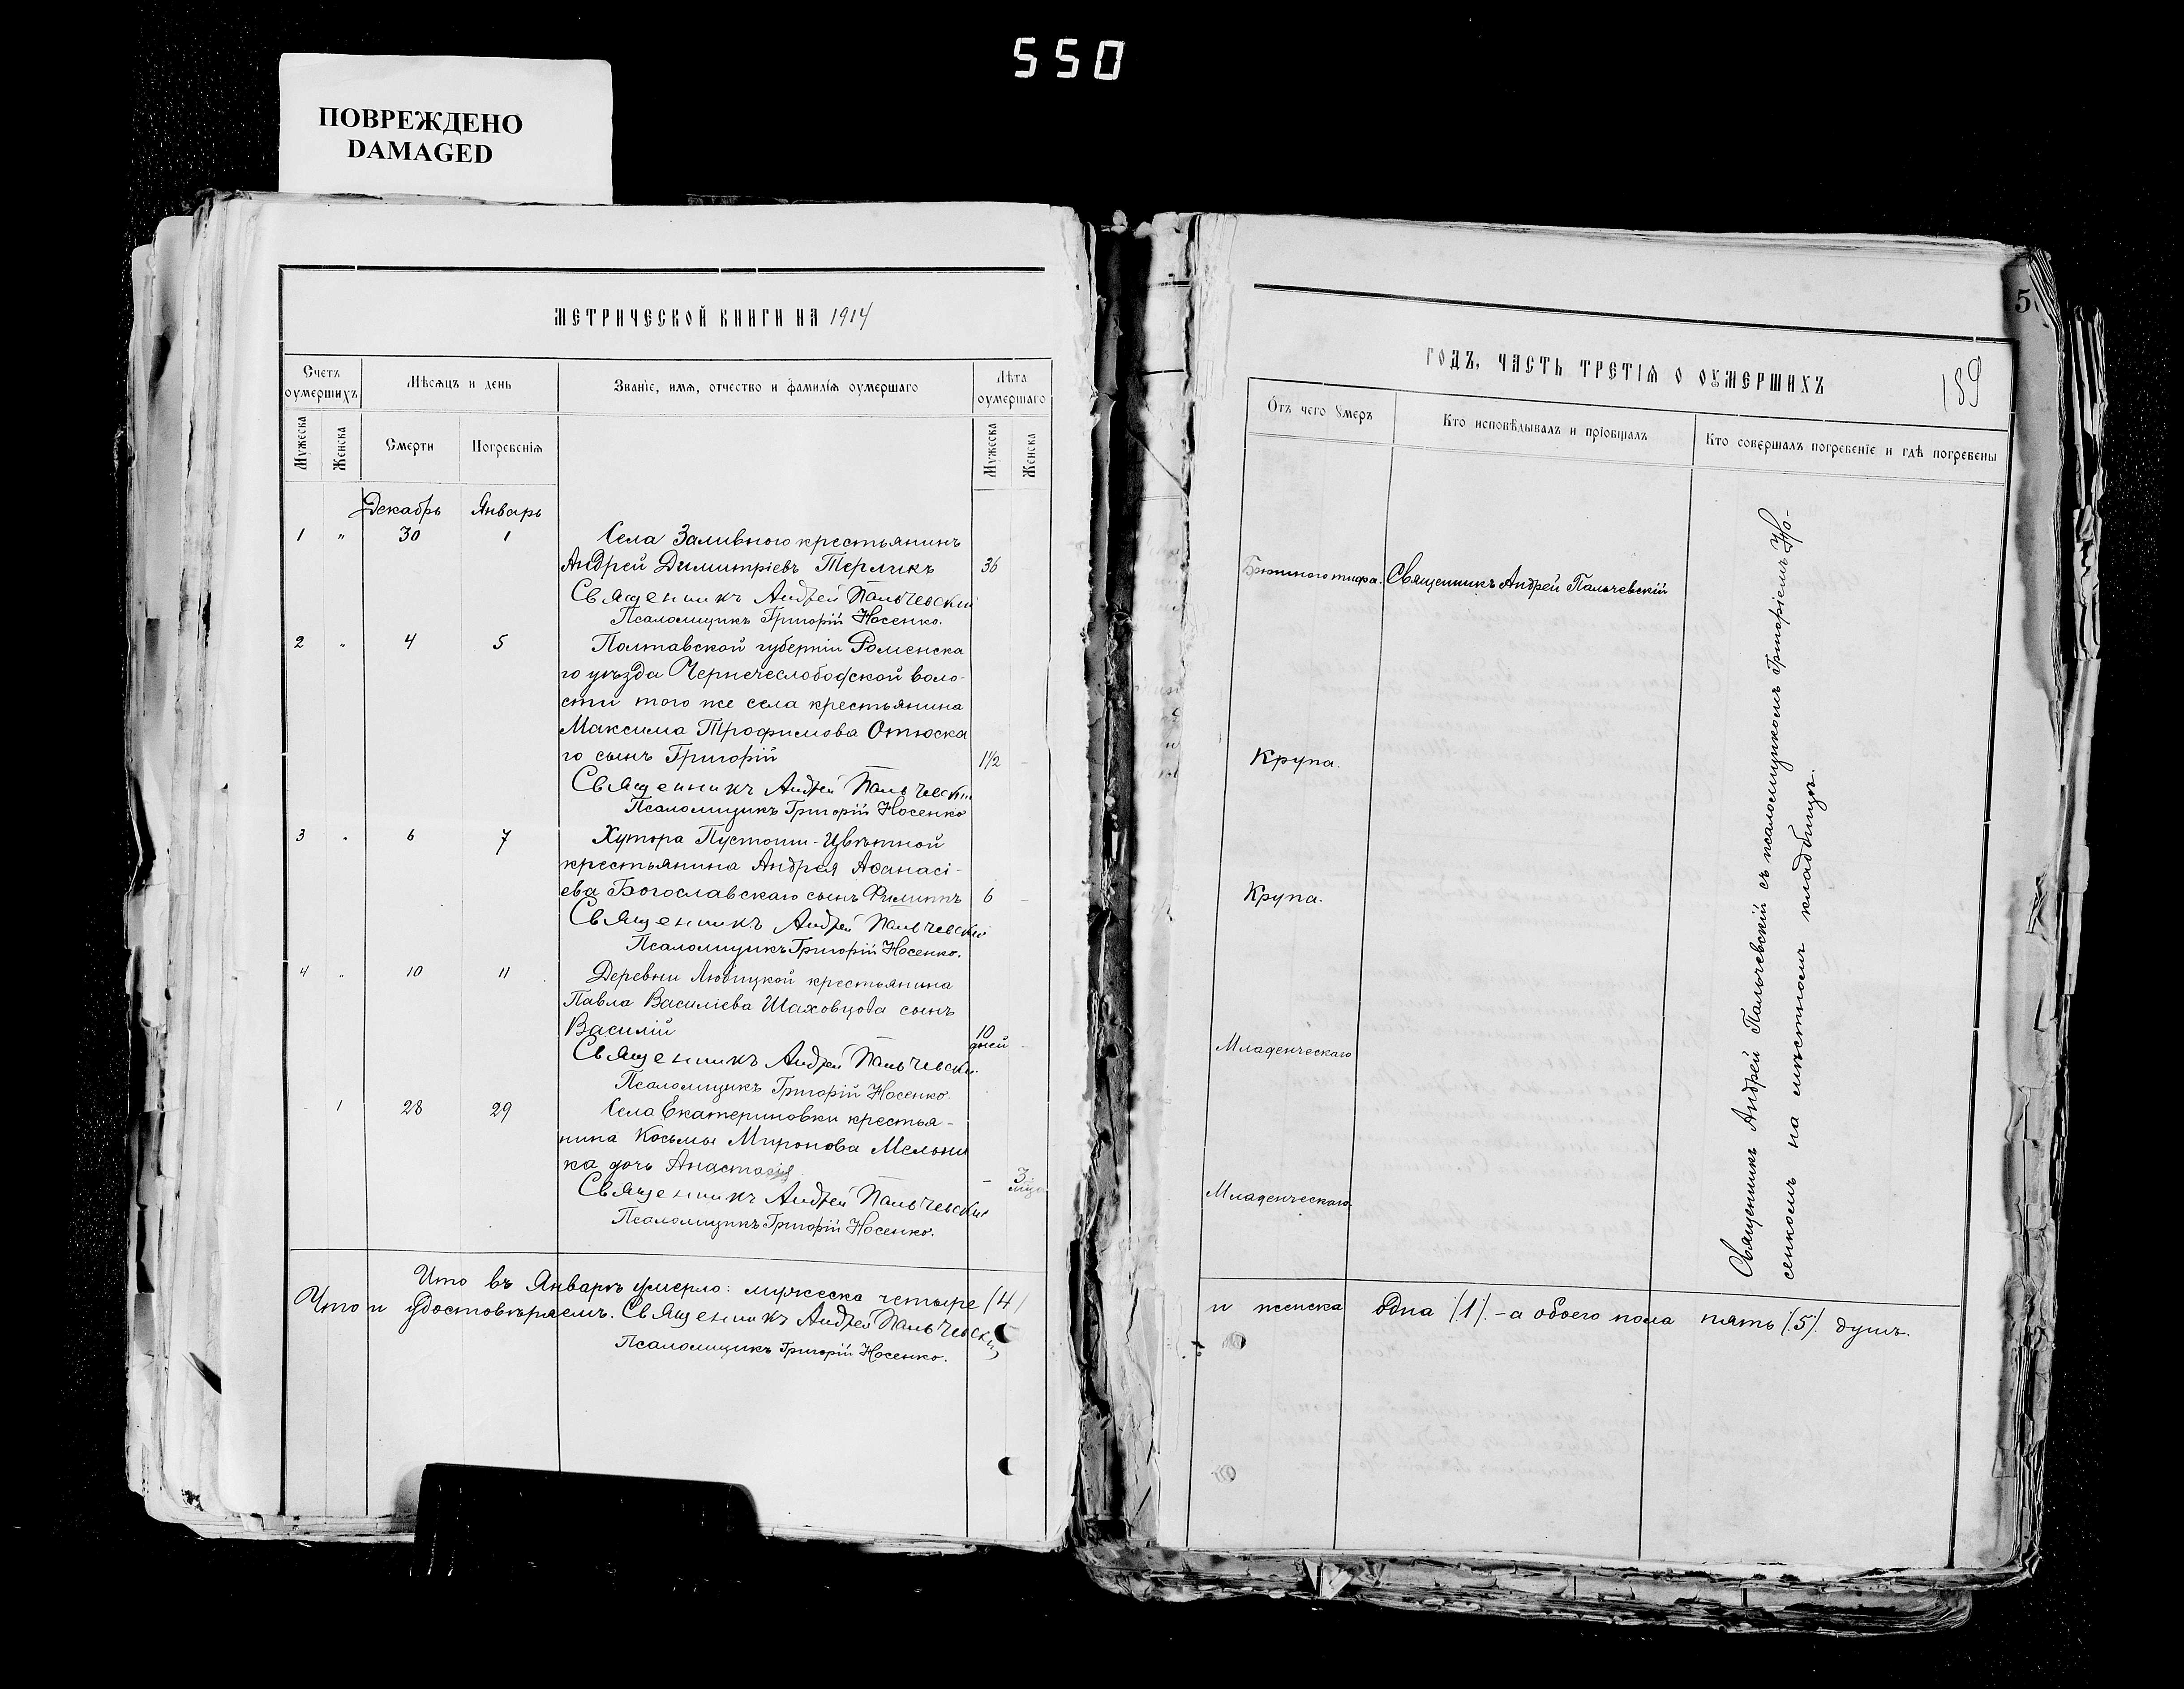 550
ПОВРЕЖДЕНО
DAMAGED
МЕТРИЧЕСКОЙ КНИГИ НА 1914
Счетъ оумершихъ
Мѣсяцъ и день
Званіе, имя, отчество и фамилія оумершаго
Лѣта оумершаго
Мужеска
Женска
Смерти
Погребенія
Мужеска
Женска
Декабрь Январь
1 " 30 1 Села Заливного крестьянинъ
Андрей Димитріевъ Терликъ 36
Священникъ Андрей Пальчевскій
Псаломщикъ Григорій Носенко.
2 " 4 5 Полтавской губерніи Роменска
го уѣзда Чернечеслободской воло-
сти того же села крестьянина
Максима Трофимова Отюска
го сынъ Григорій 1½
Священникъ Андрей Пальчевскій
Псаломщикъ Григорій Носенко
3 " 6 7 Хутора Пустоши-Цвѣтной
крестьянина Андрея Аѳанасі-
ева Богославскаго сынъ Филиппъ 6
Священникъ Андрей Пальчевскій
Псаломщикъ Григорій Носенко.
4 " 10 11 Деревни Любицкой крестьянина
Павла Василіева Шаховцова сынъ
Василій 10 дней
Священникъ Андрей Пальчевскій
Псаломщикъ Григорій Носенко.
- 1 28 29 Села Екатериновки крестья-
нина Косьмы Миронова Мельни
ка дочь Анастасія - 3 мца
Священникъ Андрей Пальчевскій
Псаломщикъ Григорій Носенко.
Что въ Январѣ умерло: мужеска четыре (4)
Что и удостовѣряемъ. Священникъ Андрей Пальчевскій
Псаломщикъ Григорій Носенко.
ГОДЪ, ЧАСТЬ ТРЕТІЯ О ОУМЕРШИХЪ
189
Отъ чего умеръ
Кто исповѣдывалъ и пріобщалъ
Кто совершалъ погребеніе и гдѣ погребены
Брюшного тифа. Священникъ Андрей Пальчевскій
Крупа.
Крупа.
Младенческаго
Младенческаго
Священникъ Андрей Пальчевскій съ псаломщикомъ Григоріемъ Но-
сенкомъ на мѣстномъ кладбищѣ.
и женска одна (1). - а обоего пола пять (5). душъ.